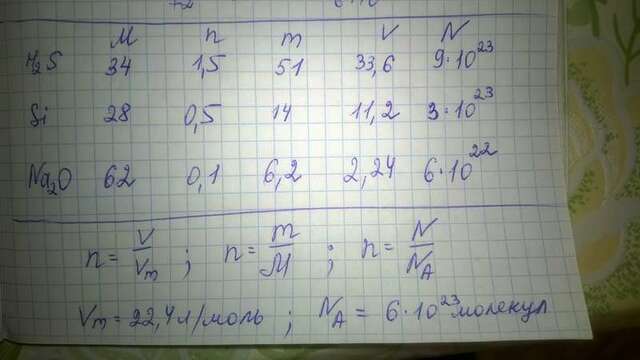 M n m V N
H₂S 34 1,5 51 33,6 9·10²³
Si 28 0,5 14 11,2 3·10²³
Na₂O 62 0,1 6,2 2,24 6·10²²
n = V/Vm ; n = m/M ; n = N/NA
Vm = 22,4 л/моль ; NA = 6·10²³ молекул